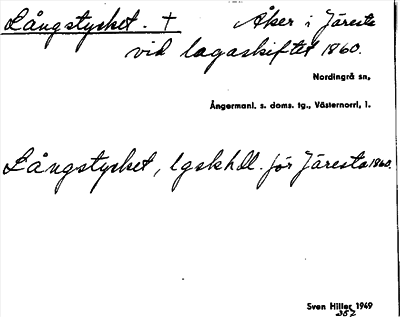 Långstycket. † Åker i Järesta
vid lagaskiftet 1860.
Nordingrå sn,
Ångermanl. s. doms. tg., Västernorrl. l.
Långstycket, lgskhdl. för Järesta 1860.
Sven Hiller 1949
357